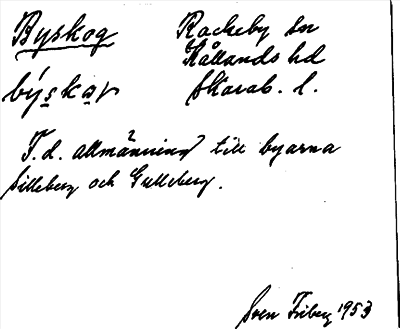 Byskog Rackeby sn
Kållands hd
býskɑr Skarab. l.
F.d. allmänning till byarna
Silleberg och Gulleberg.
Sven Friberg 1953